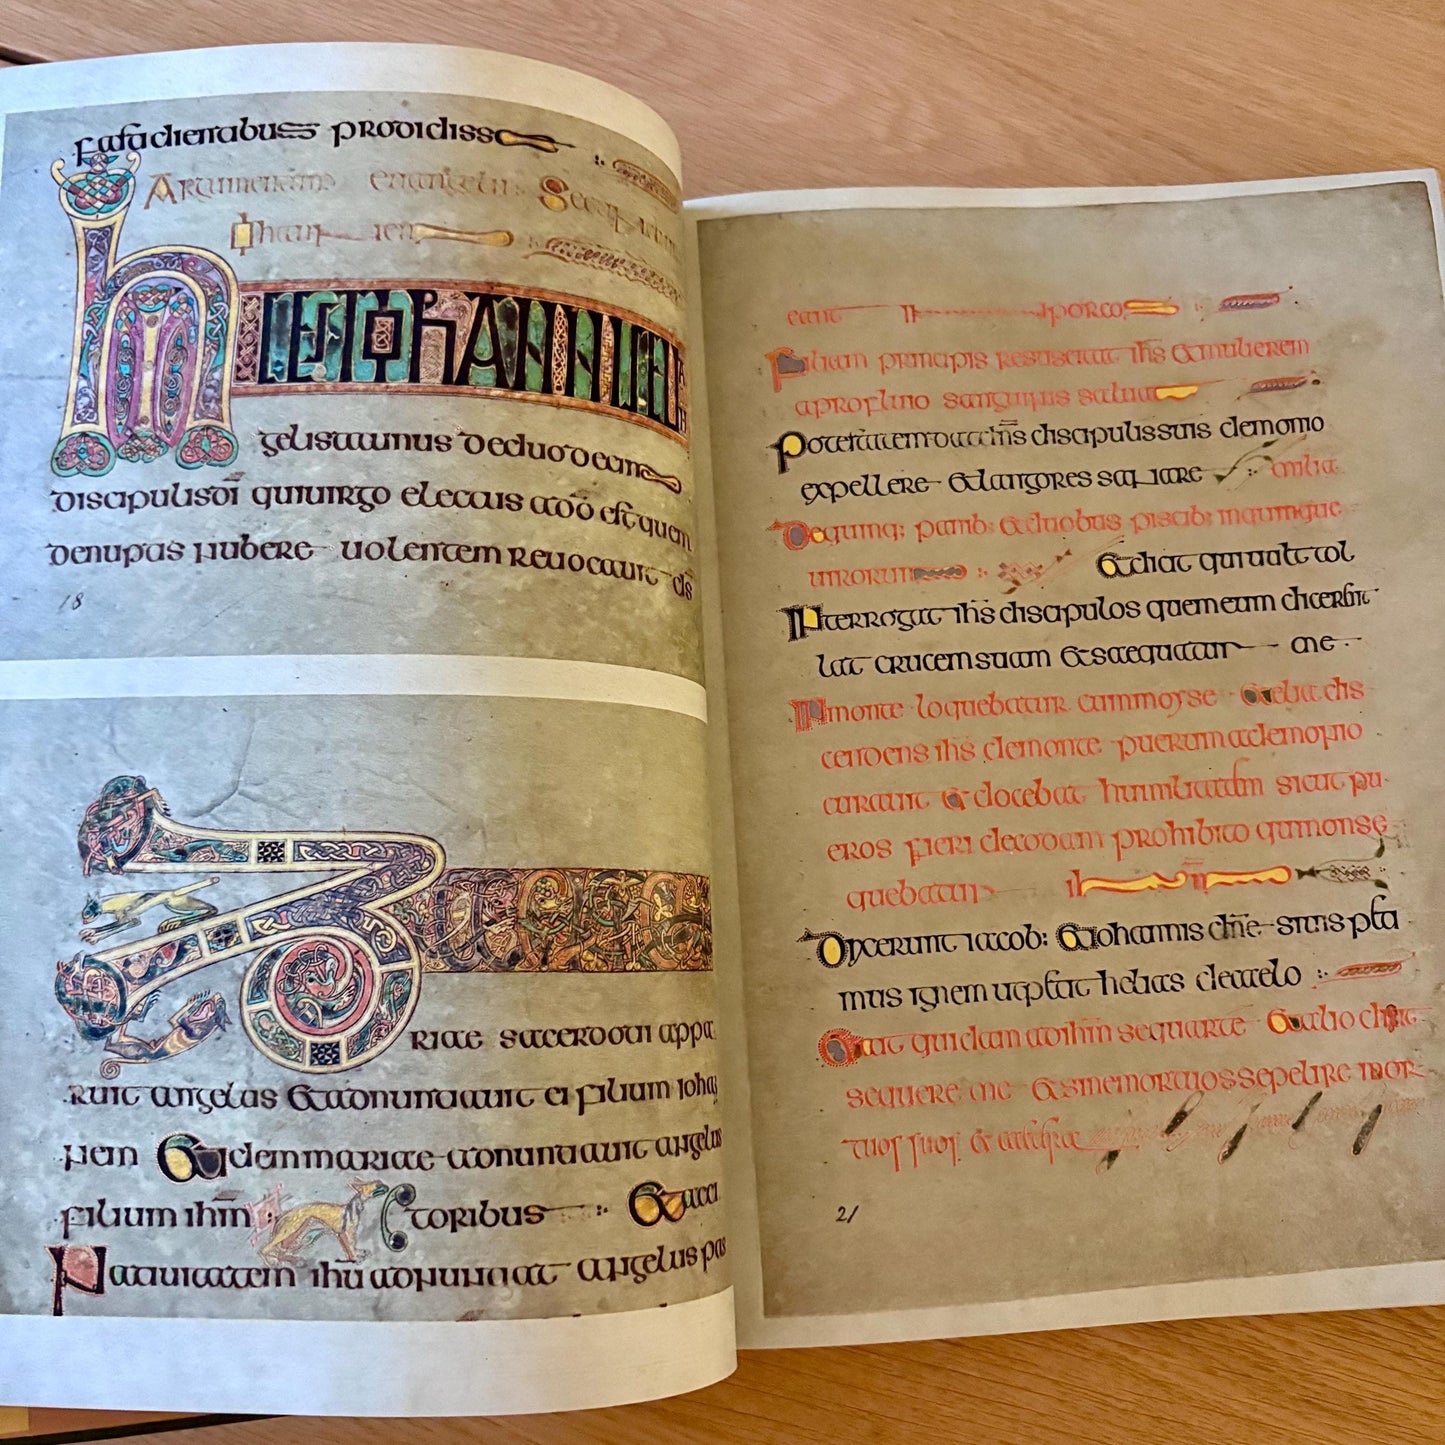 prodidisse
Argumentum euangelii Secundum
Iohannen
HIC EST IOHANNIS EUAN
gelista unus deduodecim
discipulis dī quiuirgo electus adō est quem
denuptis nubere uolentem reuocauit dś
18
ZACHA
riae sacerdoti appa
ruit angelus et adnuntiauit ei filium iohan
nem et idem mariae adnuntiauit angelus
filium ihm̄ toribus et acci
Natiuitatem ihū adnuntiat angelus pas
erant porco
Filiam principis resuscitat ihs et mulierem
aprofluio sanguinis saluat
Potestatem dat ihs discipulis suis demonia
expellere et langores sanare milia
Dequinq; panib; et duobus piscib; inquinque
uirorum Et dicat quiuult tol
Interrogat ihs discipulos quem eum dicerent
lat crucem suam et sequatur me
In monte loquebatur cummoyse et elia dis
cendens ihs demonte puerum ademonio
curauit et docebat humiliandum sicut pu
eros fieri dequodam prohibito quinonse
quebatur
Dixerunt iacob; et iohannis dn̄e
mus ignem ut helias decaelo
Erat quidam adihm sequare et alio dixit
sequere me et sinemortuos sepelire mor
tuos suos et
21